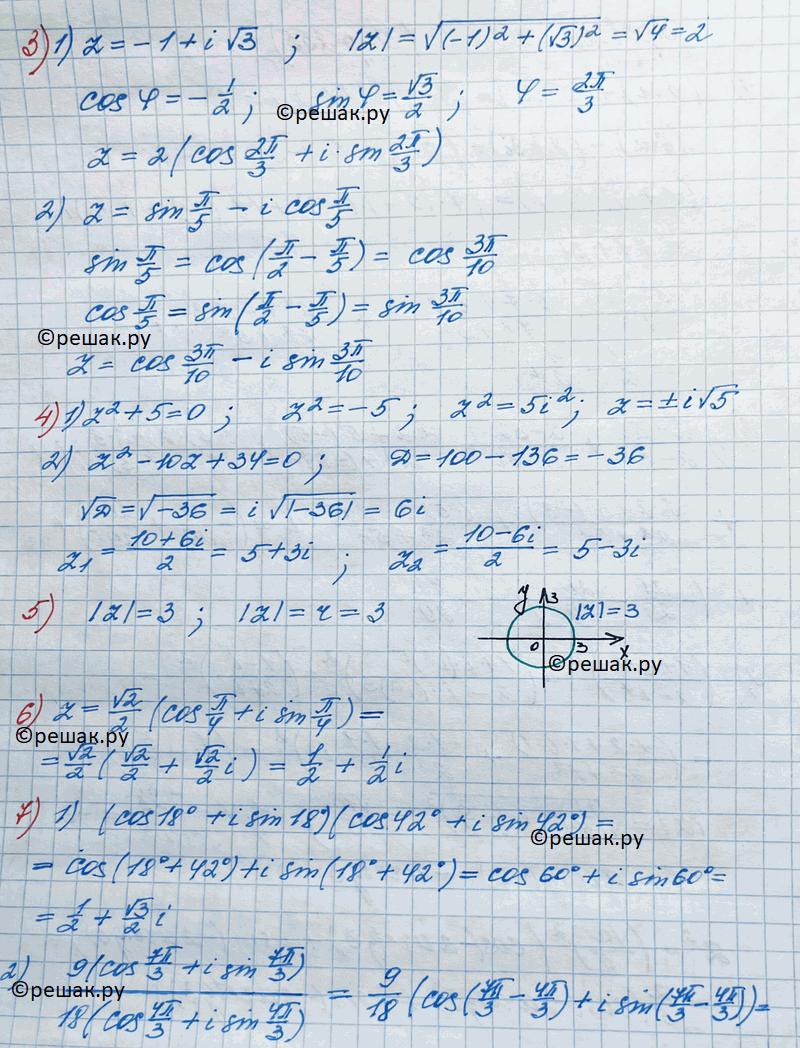 3) 1) z = -1 + i√3 ; |z| = √((-1)² + (√3)²) = √4 = 2
cos φ = -1/2 ; sin φ = √3/2 ; φ = 2π/3
©решак.ру
z = 2(cos 2π/3 + i · sin 2π/3)
2) z = sin π/5 - i cos π/5
sin π/5 = cos(π/2 - π/5) = cos 3π/10
cos π/5 = sin(π/2 - π/5) = sin 3π/10
©решак.ру
z = cos 3π/10 - i sin 3π/10
4) 1) z² + 5 = 0 ; z² = -5 ; z² = 5i² ; z = ±i√5
2) z² - 10z + 34 = 0 ; D = 100 - 136 = -36
√D = √-36 = i √|-36| = 6i
z₁ = (10+6i)/2 = 5 + 3i ; z₂ = (10-6i)/2 = 5 - 3i
5) |z| = 3 ; |z| = r = 3
y 3 |z| = 3
0 3 x
©решак.ру
6) z = √2/2 (cos π/4 + i sin π/4) =
©решак.ру
= √2/2 (√2/2 + √2/2 i) = 1/2 + 1/2 i
7) 1) (cos 18° + i sin 18°)(cos 42° + i sin 42°) =
©решак.ру
= cos(18° + 42°) + i sin(18° + 42°) = cos 60° + i sin 60° =
= 1/2 + √3/2 i
2) 9(cos 7π/3 + i sin 7π/3) / 18(cos 4π/3 + i sin 4π/3) = 9/18 (cos(7π/3 - 4π/3) + i sin(7π/3 - 4π/3)) =
©решак.ру